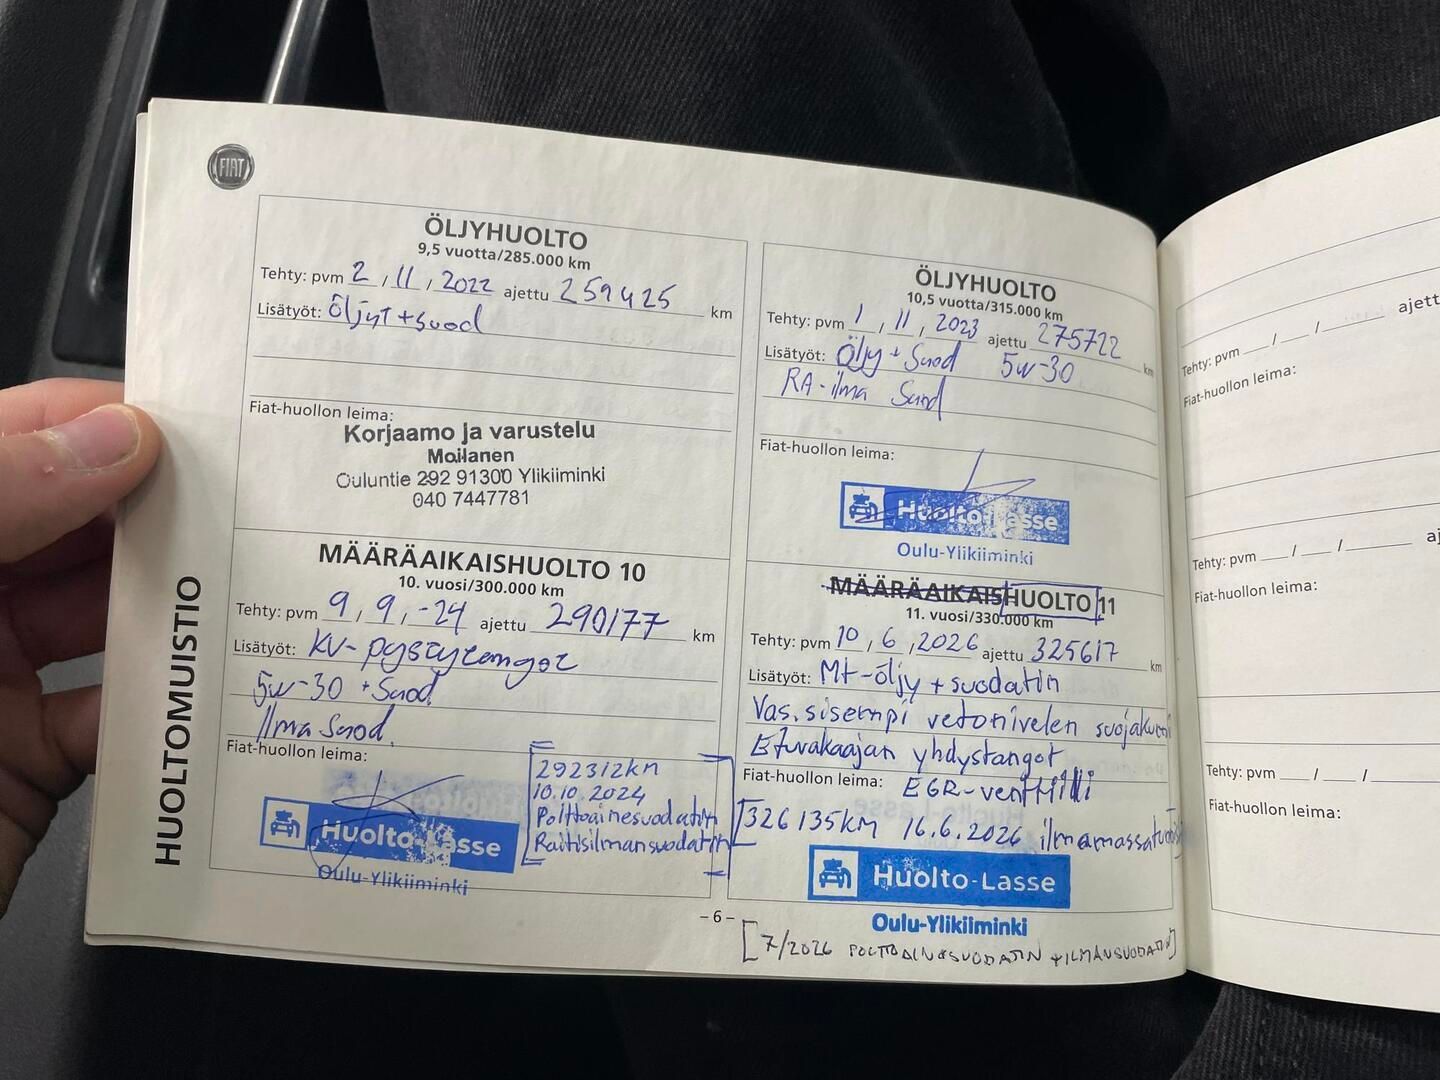 FIAT
HUOLTOMUISTIO
ÖLJYHUOLTO
9,5 vuotta/285.000 km
Tehty: pvm 2 , 11 , 2022 ajettu 259425 km
Lisätyöt: Öljyt + Suod
Fiat-huollon leima:
Korjaamo ja varustelu
Moilanen
Ouluntie 292 91300 Ylikiiminki
040 7447781
MÄÄRÄAIKAISHUOLTO 10
10. vuosi/300.000 km
Tehty: pvm 9 , 9 , -24 ajettu 290177 km
Lisätyöt: KV-pystytangot
5w-30 + Suod
Ilma Suod.
Fiat-huollon leima:
292312km
10.10.2024
Polttoainesuodatin
Raitisilmansuodatin
Huolto-Lasse
Oulu-Ylikiiminki
ÖLJYHUOLTO
10,5 vuotta/315.000 km
Tehty: pvm 1 , 11 , 2023 ajettu 275722 km
Lisätyöt: Öljy + Suod 5w-30
RA-ilma Suod
Fiat-huollon leima:
Huolto-Lasse
Oulu-Ylikiiminki
MÄÄRÄAIKAISHUOLTO 11
11. vuosi/330.000 km
Tehty: pvm 10 , 6 , 2026 ajettu 325617 km
Lisätyöt: Mt-öljy + suodatin
Vas. sisempi vetonivelen
Etuvakaajan yhdystangot
Fiat-huollon leima: EGR-venttiili
[326135KM 16.6.2026
Huolto-Lasse
Oulu-Ylikiiminki
– 6 –
[7/2026 POLTTOAINESUODATIN + ILMANSUODATIN]
ajett
Tehty: pvm / /
Fiat-huollon leima:
aj
Tehty: pvm / /
Fiat-huollon leima:
Tehty: pvm / /
Fiat-huollon leima: